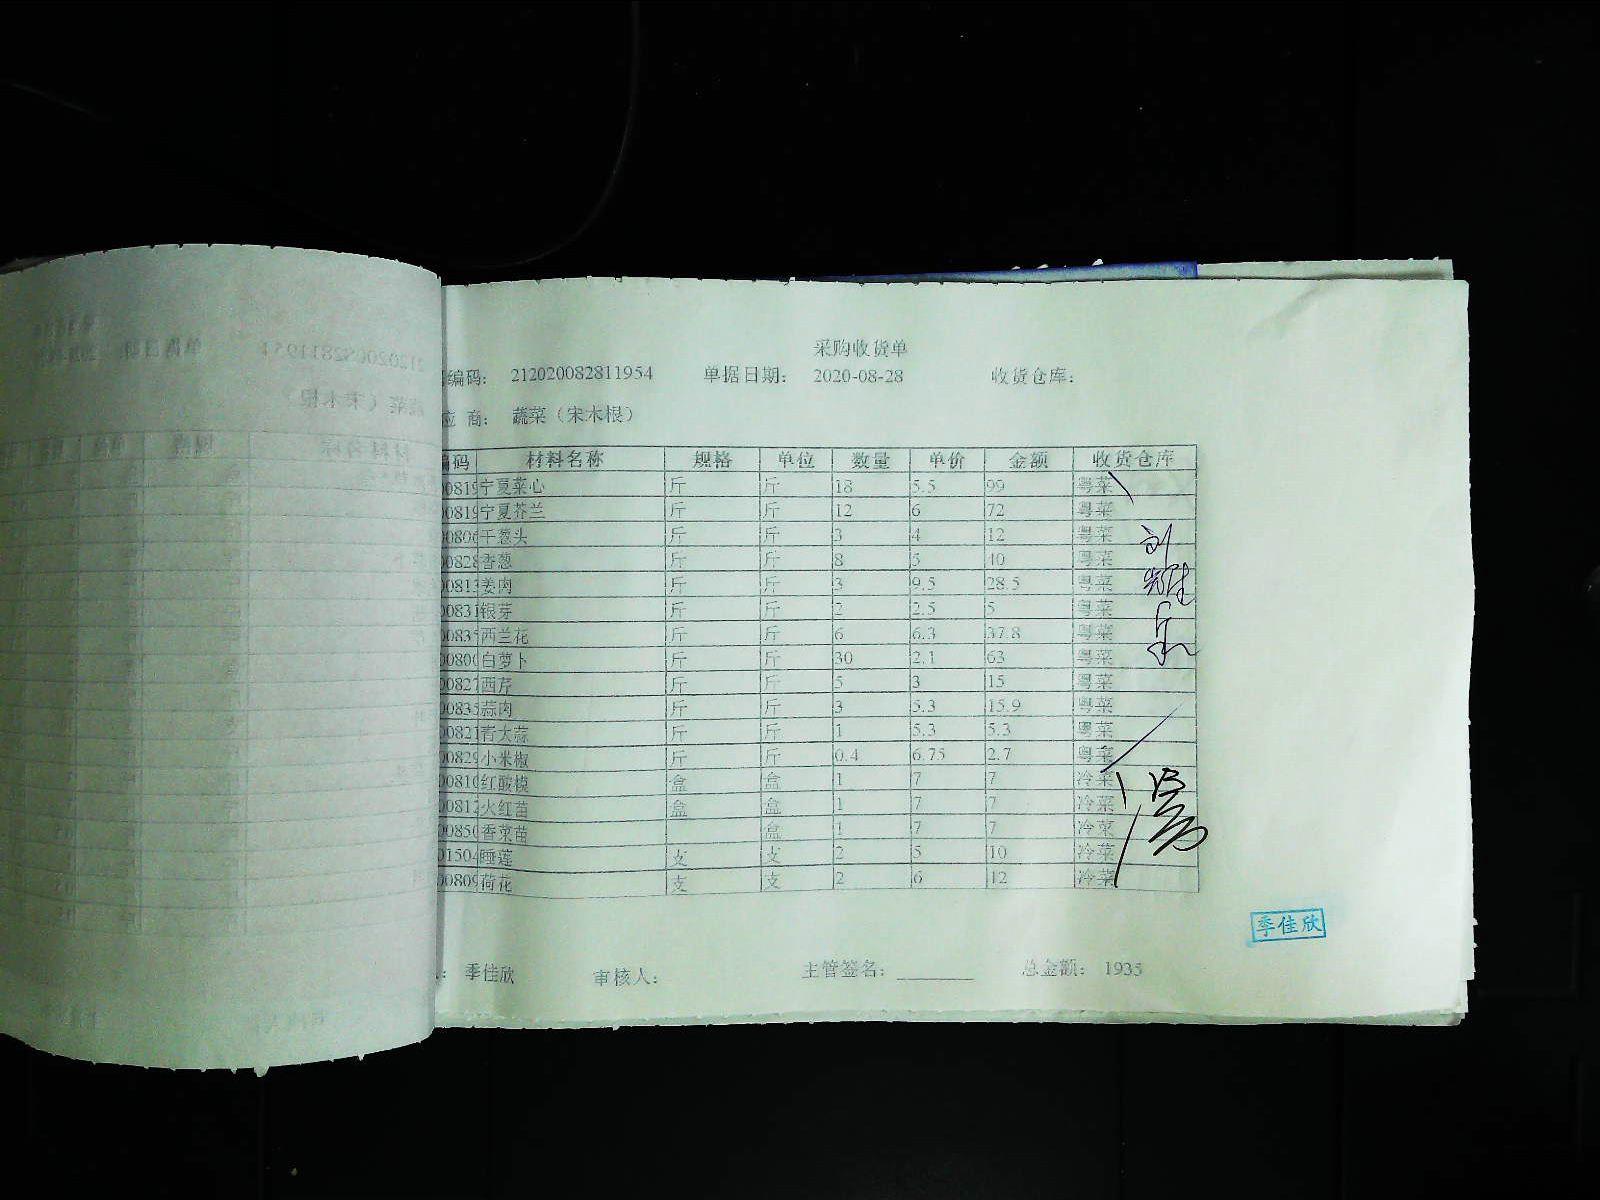 采购收货单
编码： 212020082811954 单据日期： 2020-08-28 收货仓库：
应 商： 蔬菜（宋木根）
编码 材料名称 规格 单位 数量 单价 金额 收货仓库
00819 宁夏菜心 斤 斤 18 5.5 99 粤菜
00819 宁夏芥兰 斤 斤 12 6 72 粤菜
00806 干葱头 斤 斤 3 4 12 粤菜
00828 香葱 斤 斤 8 5 40 粤菜
00813 姜肉 斤 斤 3 9.5 28.5 粤菜
00831 银芽 斤 斤 2 2.5 5 粤菜
00835 西兰花 斤 斤 6 6.3 37.8 粤菜
00800 白萝卜 斤 斤 30 2.1 63 粤菜
00827 西芹 斤 斤 5 3 15 粤菜
00835 蒜肉 斤 斤 3 5.3 15.9 粤菜
00821 青大蒜 斤 斤 1 5.3 5.3 粤菜
00829 小米椒 斤 斤 0.4 6.75 2.7 粤菜
00810 红酸模 盒 盒 1 7 7 冷菜
00812 火红苗 盒 盒 1 7 7 冷菜
00850 香菜苗 盒 1 7 7 冷菜
01504 睡莲 支 支 2 5 10 冷菜
00809 荷花 支 支 2 6 12 冷菜
季佳欣
： 季佳欣 审核人： 主管签名： 总金额： 1935